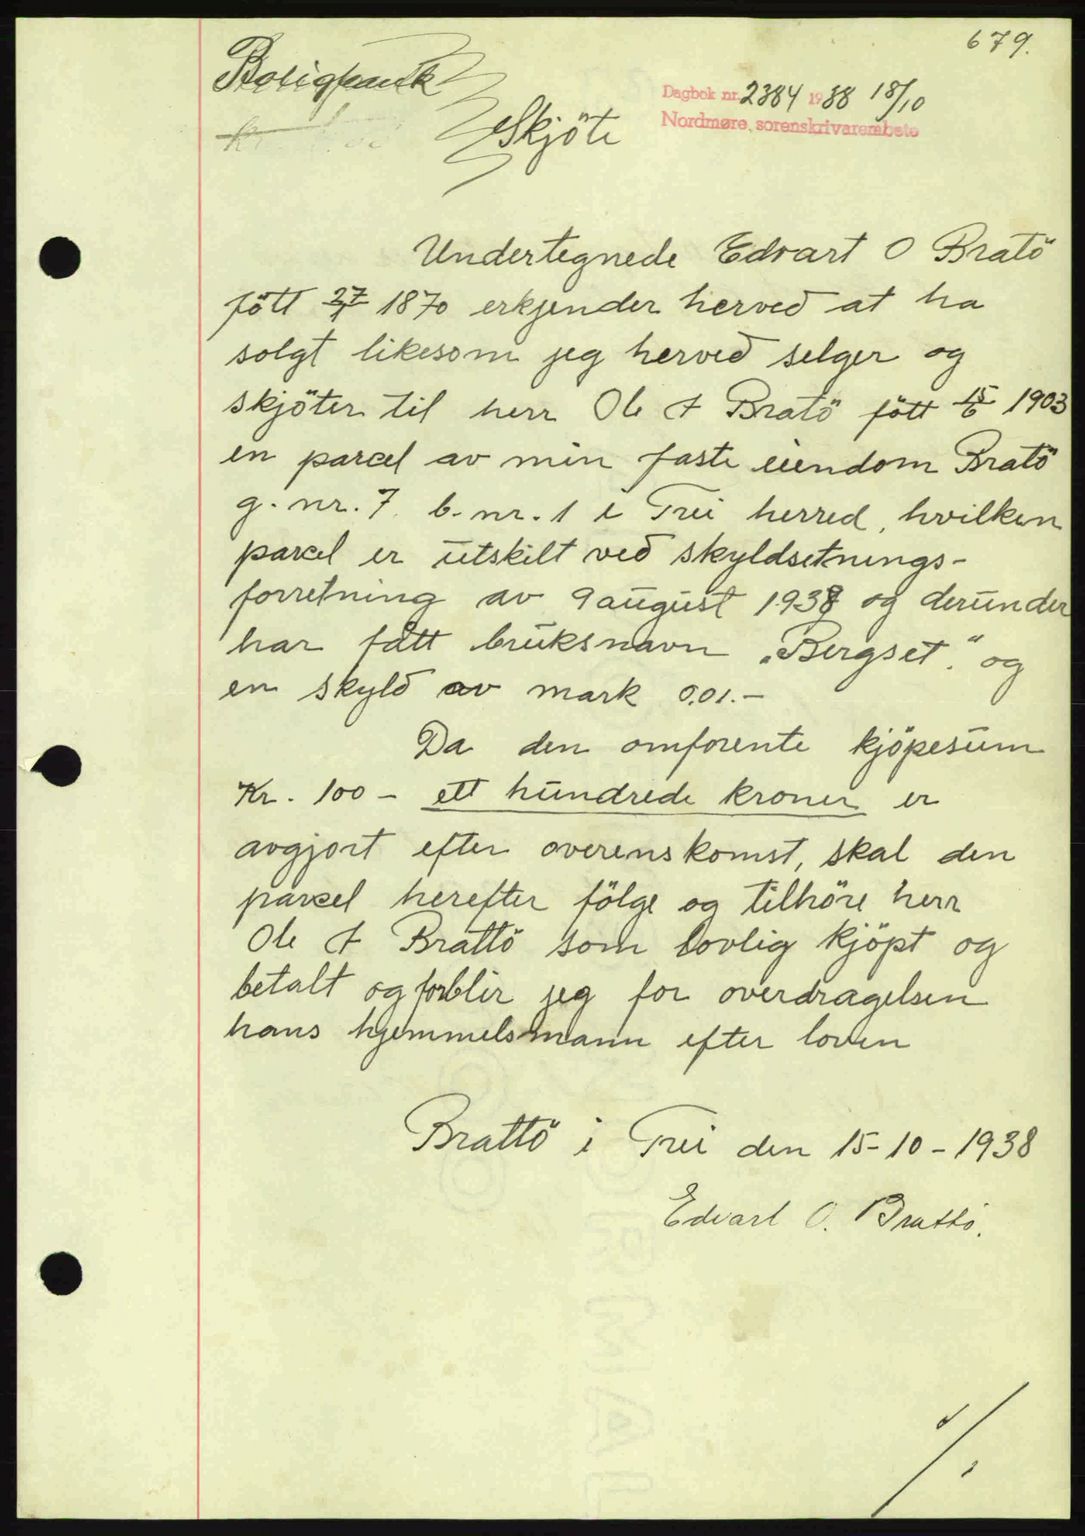 679.
Boligbank
Dagbok nr. 2384 1938 18/10
Nordmøre sorenskrivarembete
Skjöte
Undertegnede Edvart O Bratö
fött 27/1 1870 erkjender herved at ha
solgt likesom jeg herved selger og
skjöter til herr Ole A Bratö fött 15/6 1903
en parcel av min faste eiendom Bratö
g. nr. 7. b. nr. 1 i Trei herred, hvilken
parcel er utskilt ved skyldsetnings-
forretning av 9 august 1938 og derunder
har fått bruksnavn „Bergset." og
en skyld av mark 0.01.-
Da den omforente kjöpesum
Kr. 100 - ett hundrede kroner er
avgjort efter overenskomst, skal den
parcel herefter fölge og tilhöre herr
Ole A Brattö som lovlig kjöpt og
betalt og forblir jeg for overdragelsen
hans hjemmelsmann efter loven
Brattö i Trei den 15-10-1938
Edvart O. Brattö.